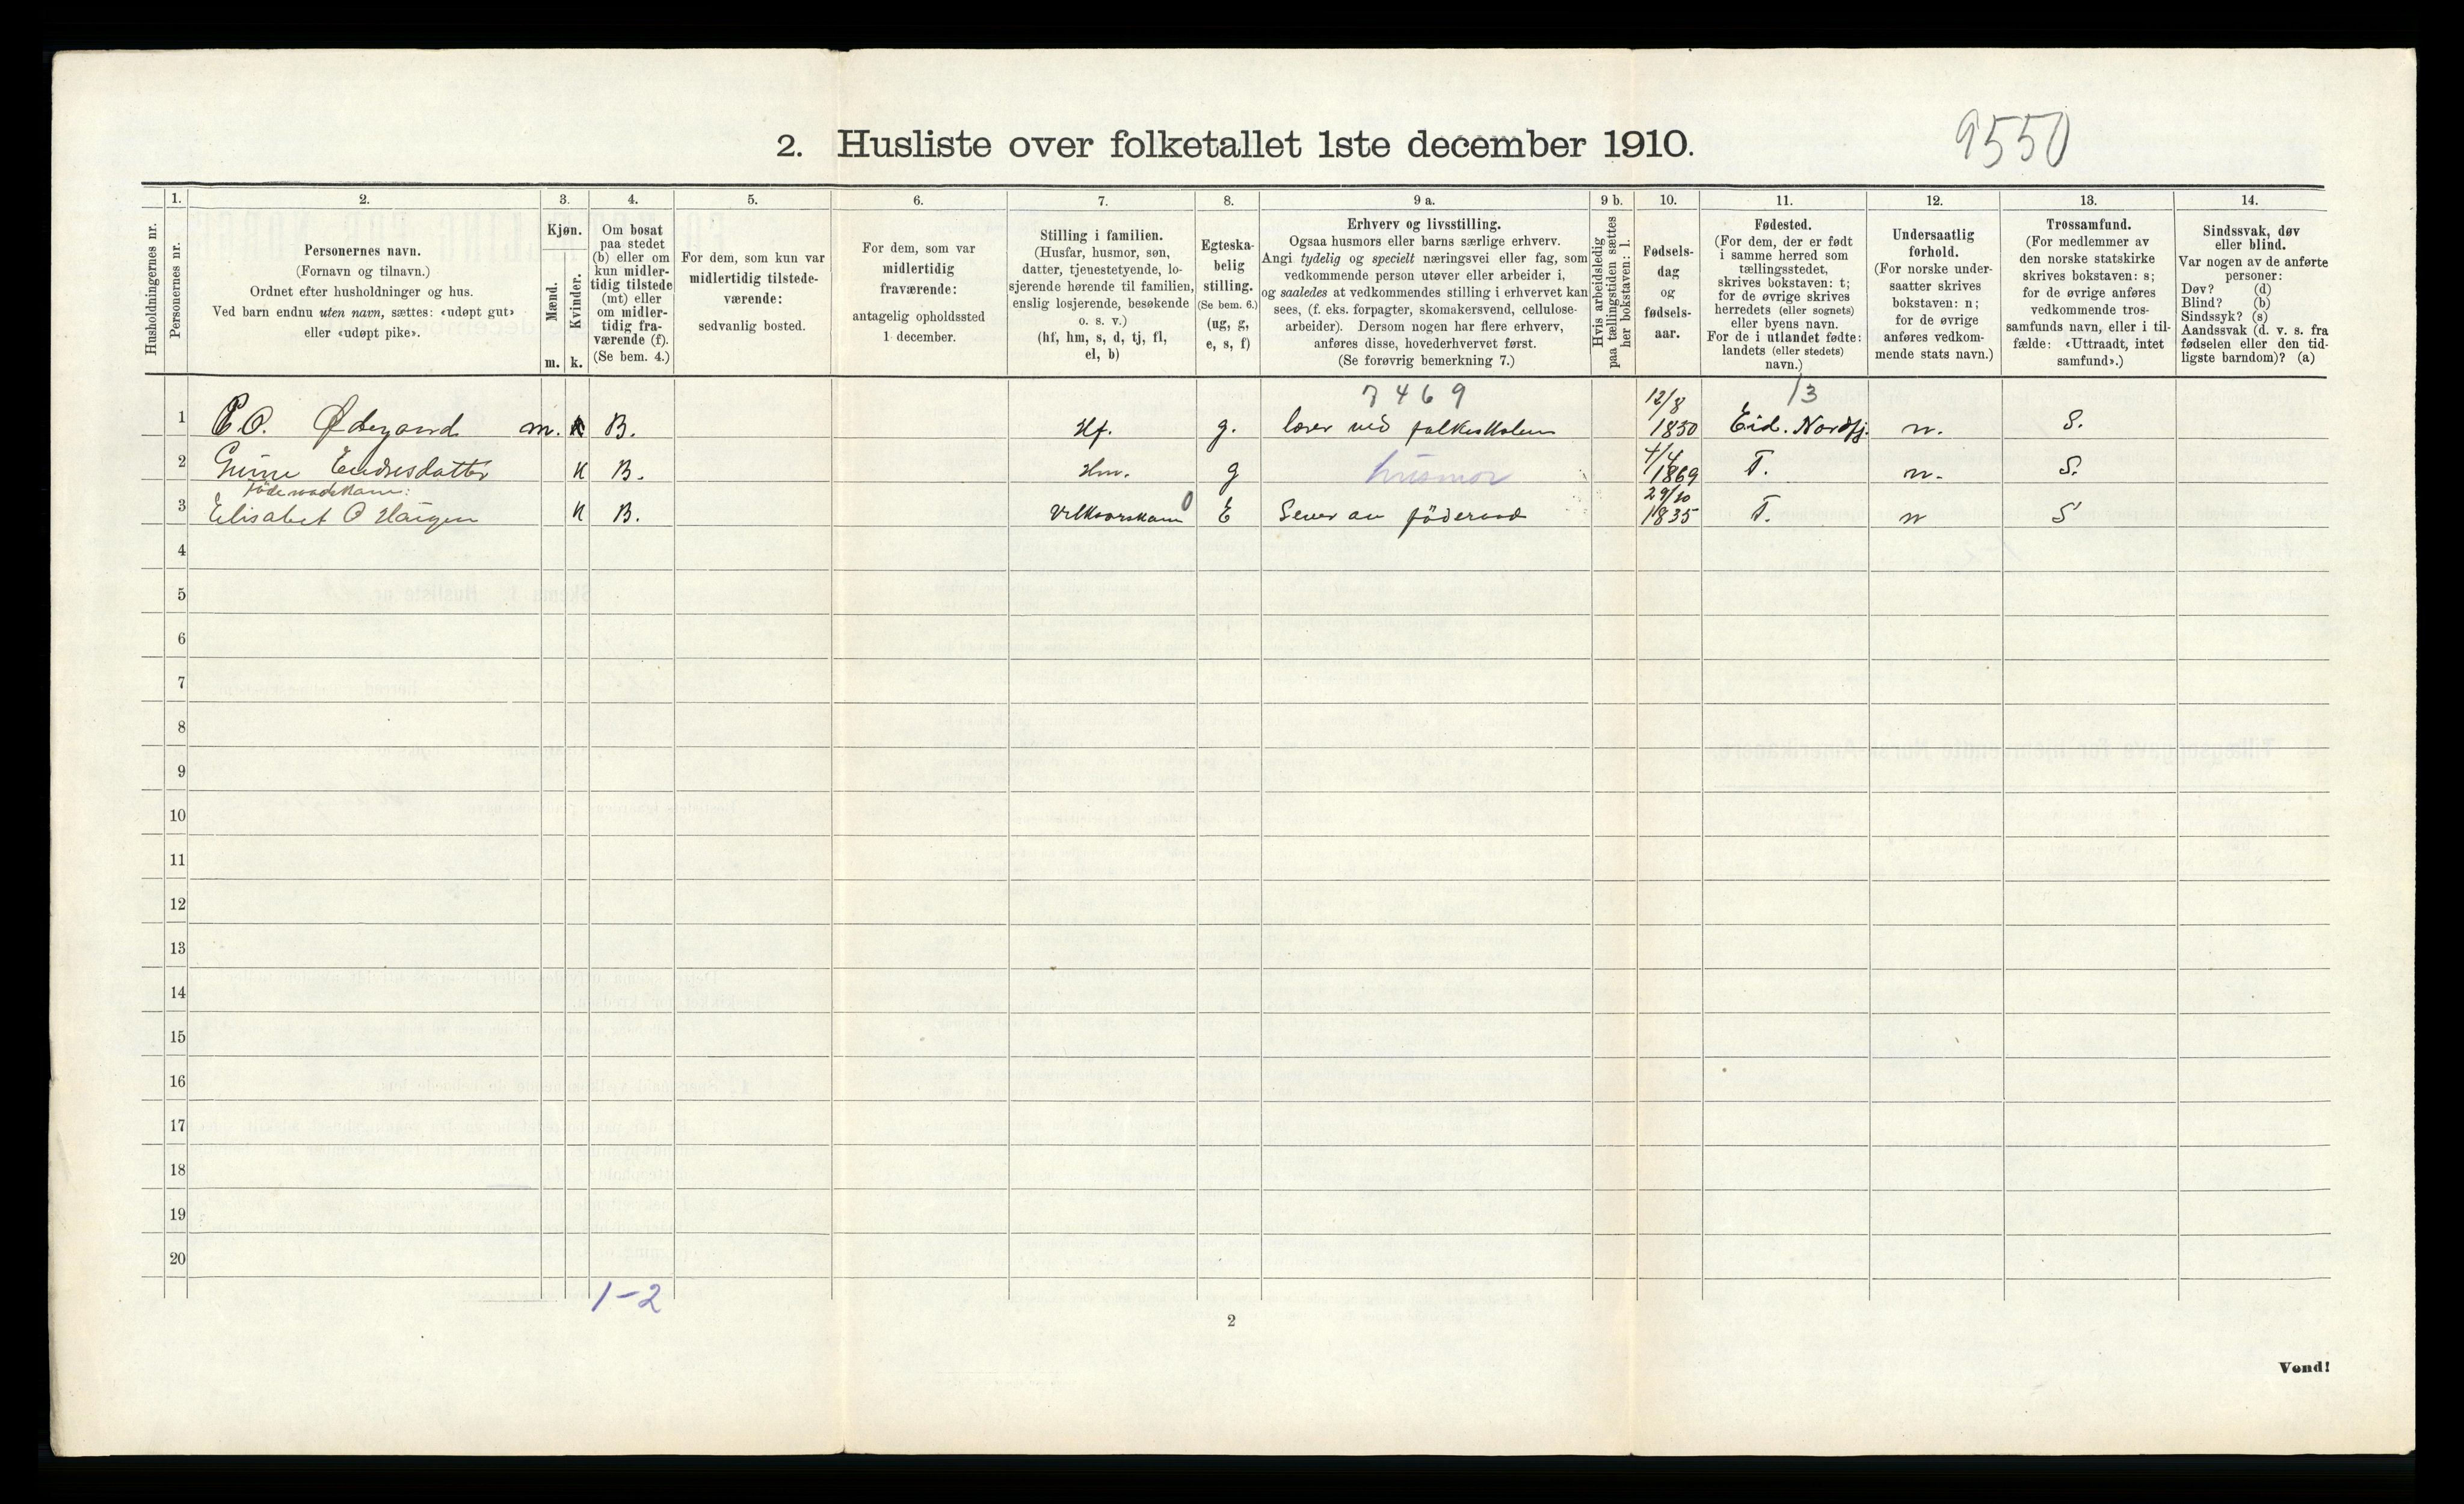 9550
2. Husliste over folketallet 1ste december 1910.
Husholdningernes nr.
1.
Personernes nr.
2.
Personernes navn.
(Fornavn og tilnavn.)
Ordnet efter husholdninger og hus.
Ved barn endnu uten navn, sættes: «udøpt gut»
eller «udøpt pike».
3.
Kjøn.
Mænd.
m.
Kvinder.
k.
4.
Om bosat
paa stedet
(b) eller om
kun midler-
tidig tilstede
(mt) eller
om midler-
tidig fra-
værende (f).
(Se bem. 4.)
5.
For dem, som kun var
midlertidig tilstede-
værende:
sedvanlig bosted.
6.
For dem, som var
midlertidig
fraværende:
antagelig opholdssted
1 december.
7.
Stilling i familien.
(Husfar, husmor, søn,
datter, tjenestetyende, lo-
sjerende hørende til familien,
enslig losjerende, besøkende
o. s. v.)
(hf, hm, s, d, tj, fl,
el, b)
8.
Egteska-
belig
stilling.
(Se bem. 6.)
(ug, g,
e, s, f)
9 a.
Erhverv og livsstilling.
Ogsaa husmors eller barns særlige erhverv.
Angi tydelig og specielt næringsvei eller fag, som
vedkommende person utøver eller arbeider i,
og saaledes at vedkommendes stilling i erhvervet kan
sees, (f. eks. forpagter, skomakersvend, cellulose-
arbeider). Dersom nogen har flere erhverv,
anføres disse, hovederhvervet først.
(Se forøvrig bemerkning 7.)
9 b.
Hvis arbeidsledig
paa tællingstiden sættes
her bokstaven: l.
10.
Fødsels-
dag
og
fødsels-
aar.
11.
Fødested.
(For dem, der er født
i samme herred som
tællingsstedet,
skrives bokstaven: t;
for de øvrige skrives
herredets (eller sognets)
eller byens navn.
For de i utlandet fødte:
landets (eller stedets)
navn.)
12.
Undersaatlig
forhold.
(For norske under-
saatter skrives
bokstaven: n;
for de øvrige
anføres vedkom-
mende stats navn.)
13.
Trossamfund.
(For medlemmer av
den norske statskirke
skrives bokstaven: s;
for de øvrige anføres
vedkommende tros-
samfunds navn, eller i til-
fælde: «Uttraadt, intet
samfund».)
14.
Sindssvak, døv
eller blind.
Var nogen av de anførte
personer:
Døv? (d)
Blind? (b)
Sindssyk? (s)
Aandssvak (d. v. s. fra
fødselen eller den tid-
ligste barndom)? (a)
7469 12/8 13
1 P.O. Ødegaard m. B. Hf. g. lærer ved folkeskolen 1850 Eid. Nordfj. n. S.
4/4
2 Endresdatter K B. Hm. g husmor 1869 T. n. S.
föderaadskone: 29/10
3 Elisabet O Haugen K B. 0 E Lever av föderaad 1835 T. n S
4
5
6
7
8
9
10
11
12
13
14
15
16
17
18
19
20
1-2
2
Vend!